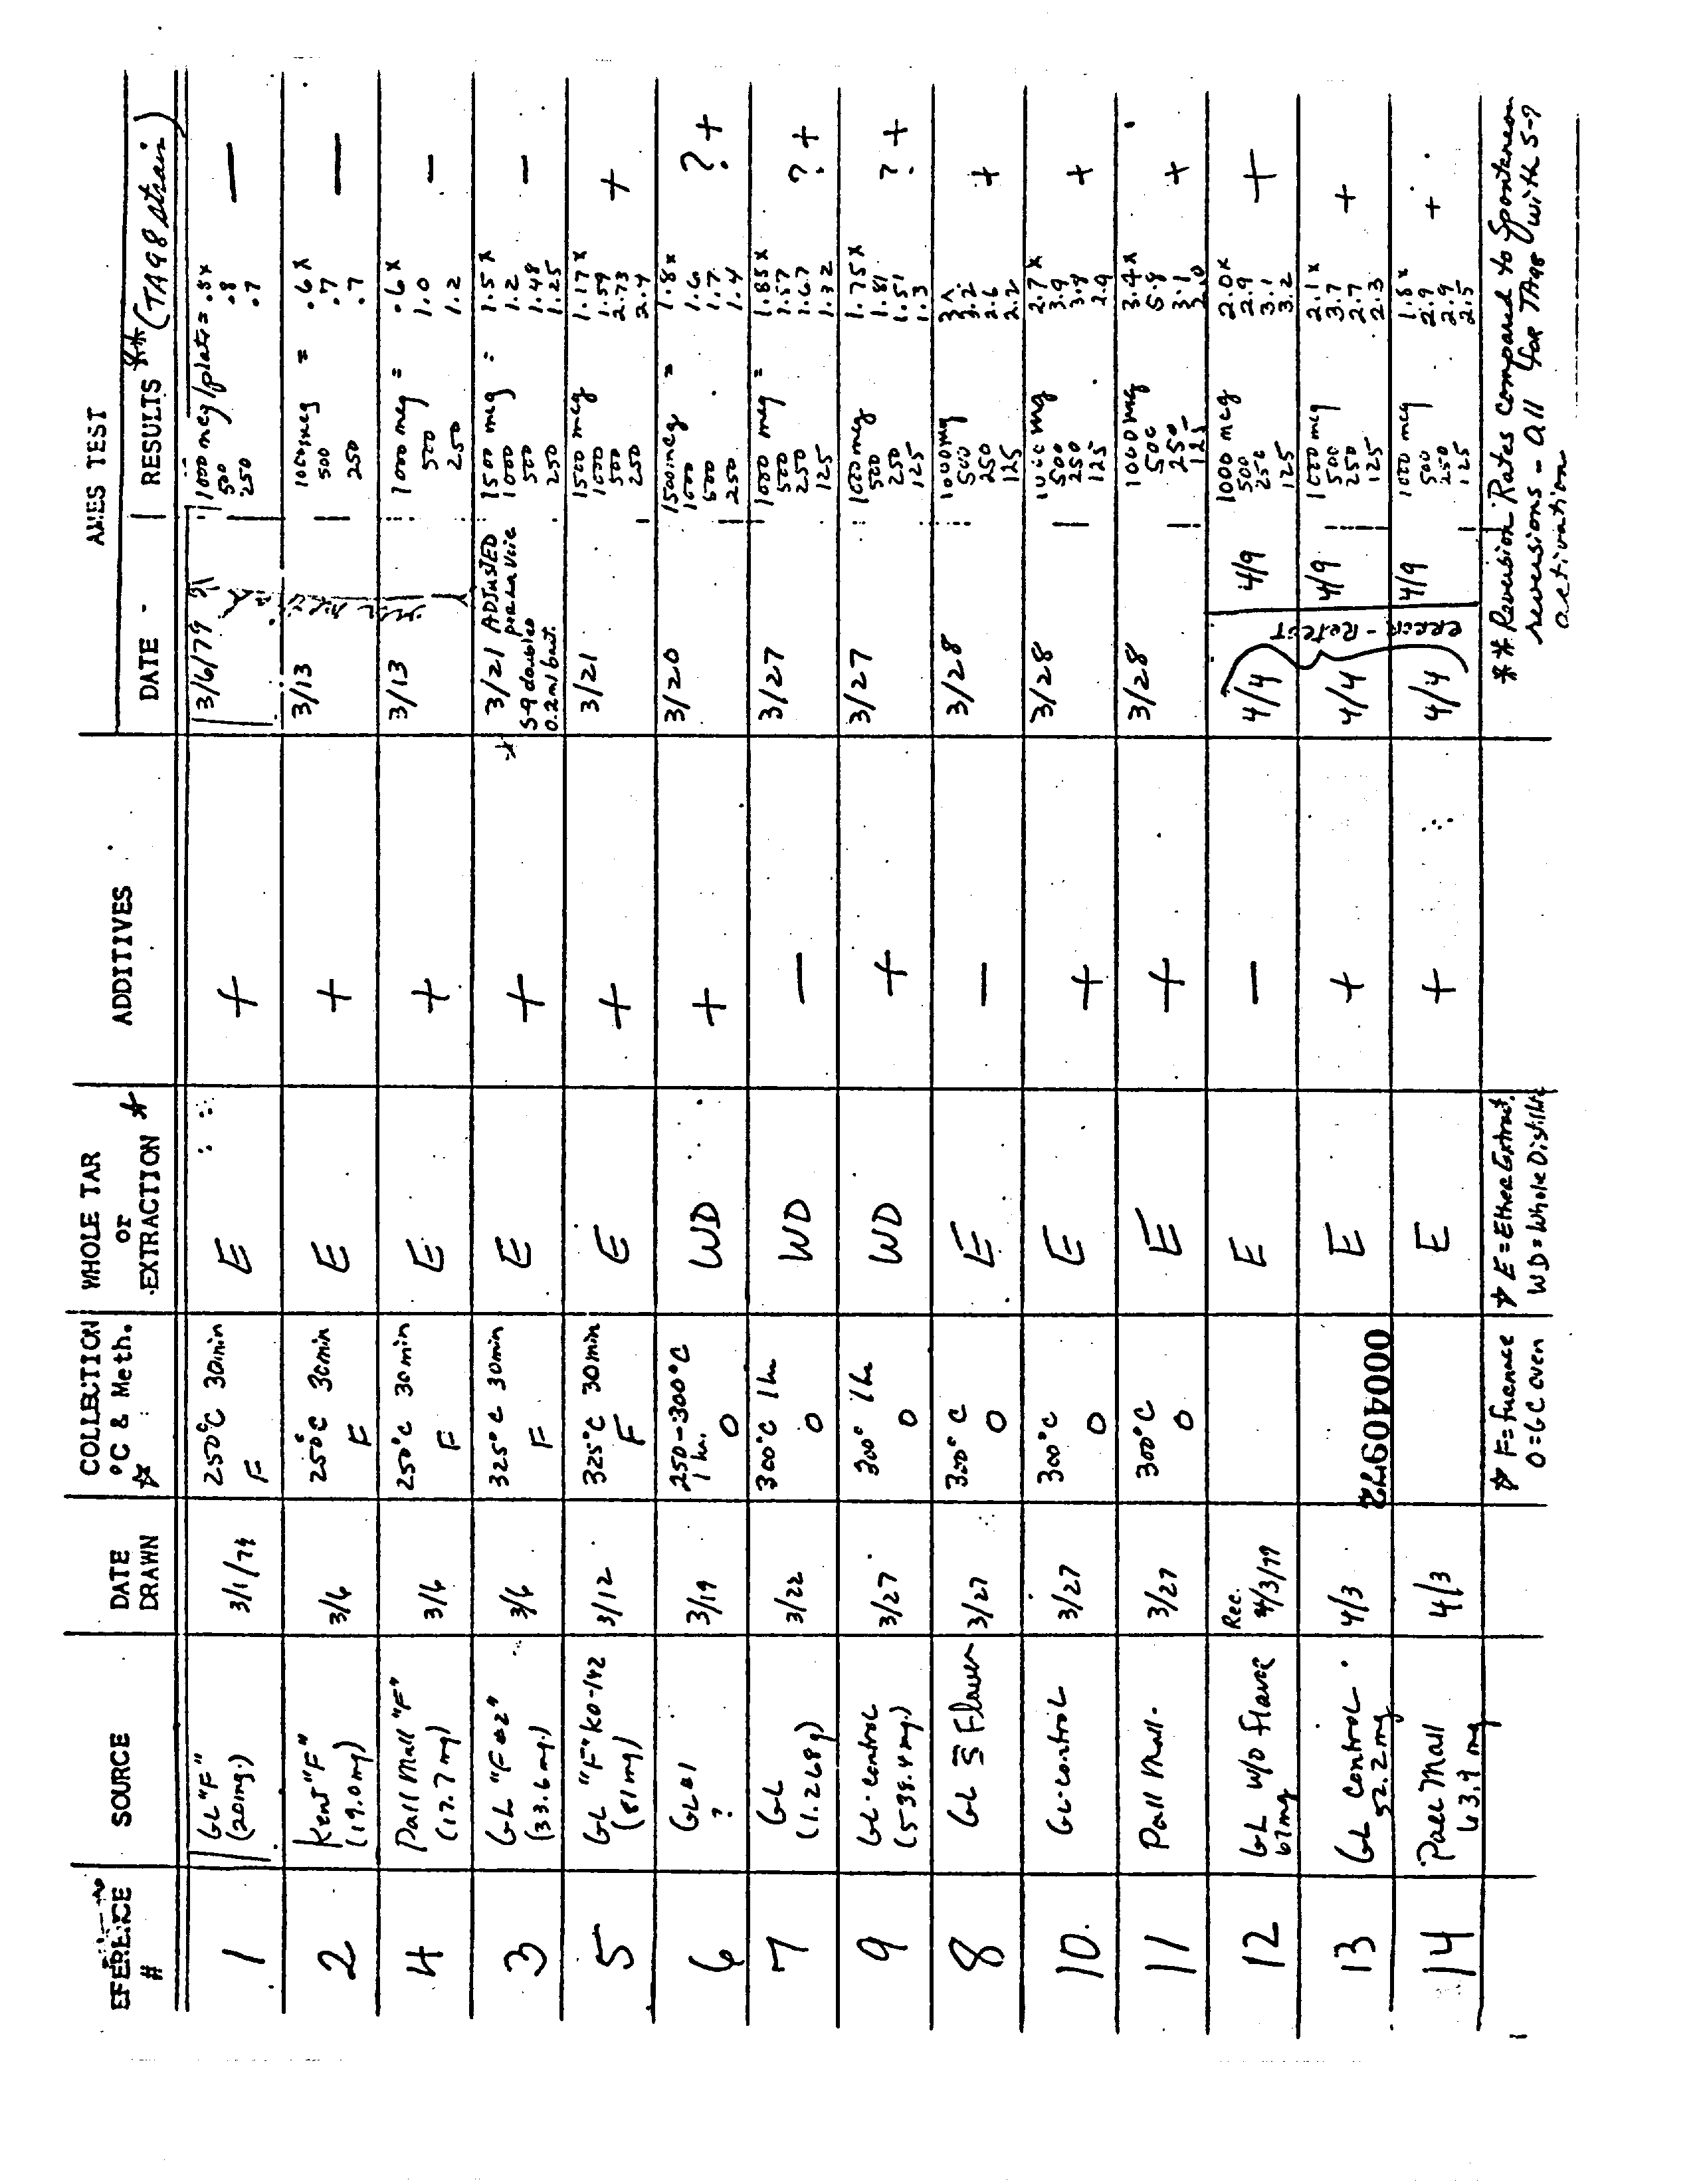 AMES TEST
REFERENCE # SOURCE DATE DRAWN COLLECTION °C & Meth. ☆ WHOLE TAR or EXTRACTION * ADDITIVES DATE - RESULTS ** (TA98 strain)
1 GL "F" (20mg.) 3/1/79 250°C 30min F E + 3/6/79 1000 mcg/plate = .8x −
500 .8
250 .7
2 Kent "F" (19.0mg) 3/6 250°C 30min F E + 3/13 1000mcg = .6x −
500 .7
250 .7
4 Pall Mall "F" (17.7mg) 3/6 250°C 30min F E + 3/13 1000 mcg = .6x −
500 1.0
250 1.2
3 GL "F #2" (33.6mg.) 3/6 325°C 30min F E + * 3/21 ADJUSTED S-9 doubled 0.2ml bact. 1500 mcg = 1.5x −
1000 1.2
500 1.48
250 1.25
5 GL "F" KO-142 (81mg) 3/12 325°C 30min F E + 3/21 1500 mcg 1.17x +
1000 1.59
500 2.73
250 2.4
6 GL#1 ? 3/19 250-300°C 1 hr. O WD + 3/20 1500mcg = 1.8x ? +
1000 1.6
500 1.7
250 1.4
7 GL (1.268g) 3/22 300°C 1 hr O WD − 3/27 1000 mcg = 1.85x ? +
500 1.57
250 1.67
125 1.32
9 GL-Control (539.4mg.) 3/27 300° 1hr O WD + 3/27 1000mcg 1.75x ? +
500 1.81
250 1.51
125 1.3
8 GL s̄ Flavor 3/27 300°C O E − 3/28 1000mg +
500 3.2
250 2.6
125 2.2
10. GL-control 3/27 300°C O E + 3/28 1000 mg 2.7x +
500 3.9
250 3.8
125 2.9
11 Pall Mall. 3/27 300°C O E + 3/28 1000mcg 3.4x +
500 5.8
250 3.1
125
12 GL w/o Flavor 67mg Rec. 4/3/79 E − 4/4 4/9 1000 mcg 2.0x +
500 2.9
250 3.1
125 3.2
13 GL Control. 52.2mg 4/3 E + 4/4 4/9 1000 mcg 2.1x +
500 3.7
250 2.7
125 2.3
14 Pall Mall 63.9mg 4/3 E + 4/4 4/9 1000 mcg 1.8x +
500 2.9
250 2.9
125 2.5
error - Retest
00040972
☆ F=furnace
O=GC oven
* E=Ether Extract.
WD=Whole Distillate
** Reversion Rates Compared to Spontaneous
reversions - all for TA98 with S-9
activation